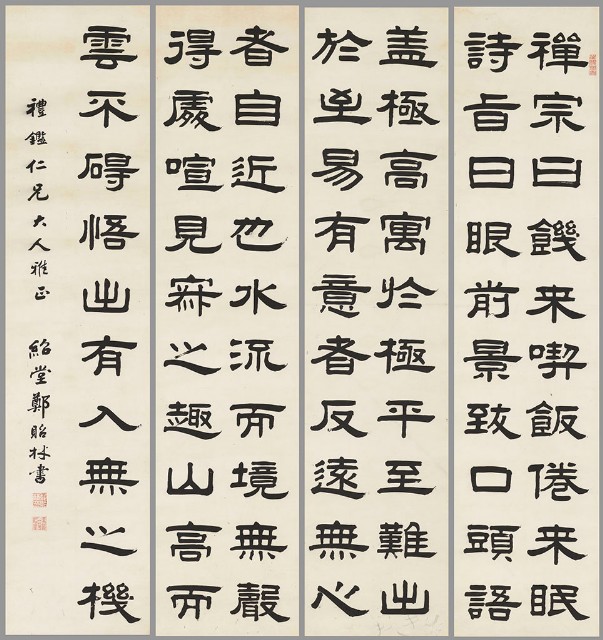 禪宗曰饑来喫飯倦来眠
詩旨曰眼前景致口頭語
盖極高寓扵極平至難出
扵至易有意者反遠無心
者自近也水流而境無聲
得處喧見寂之趣山高而
雲不碍悟出有入無之機
禮鑑仁兄大人雅正 紹堂鄭貽林書